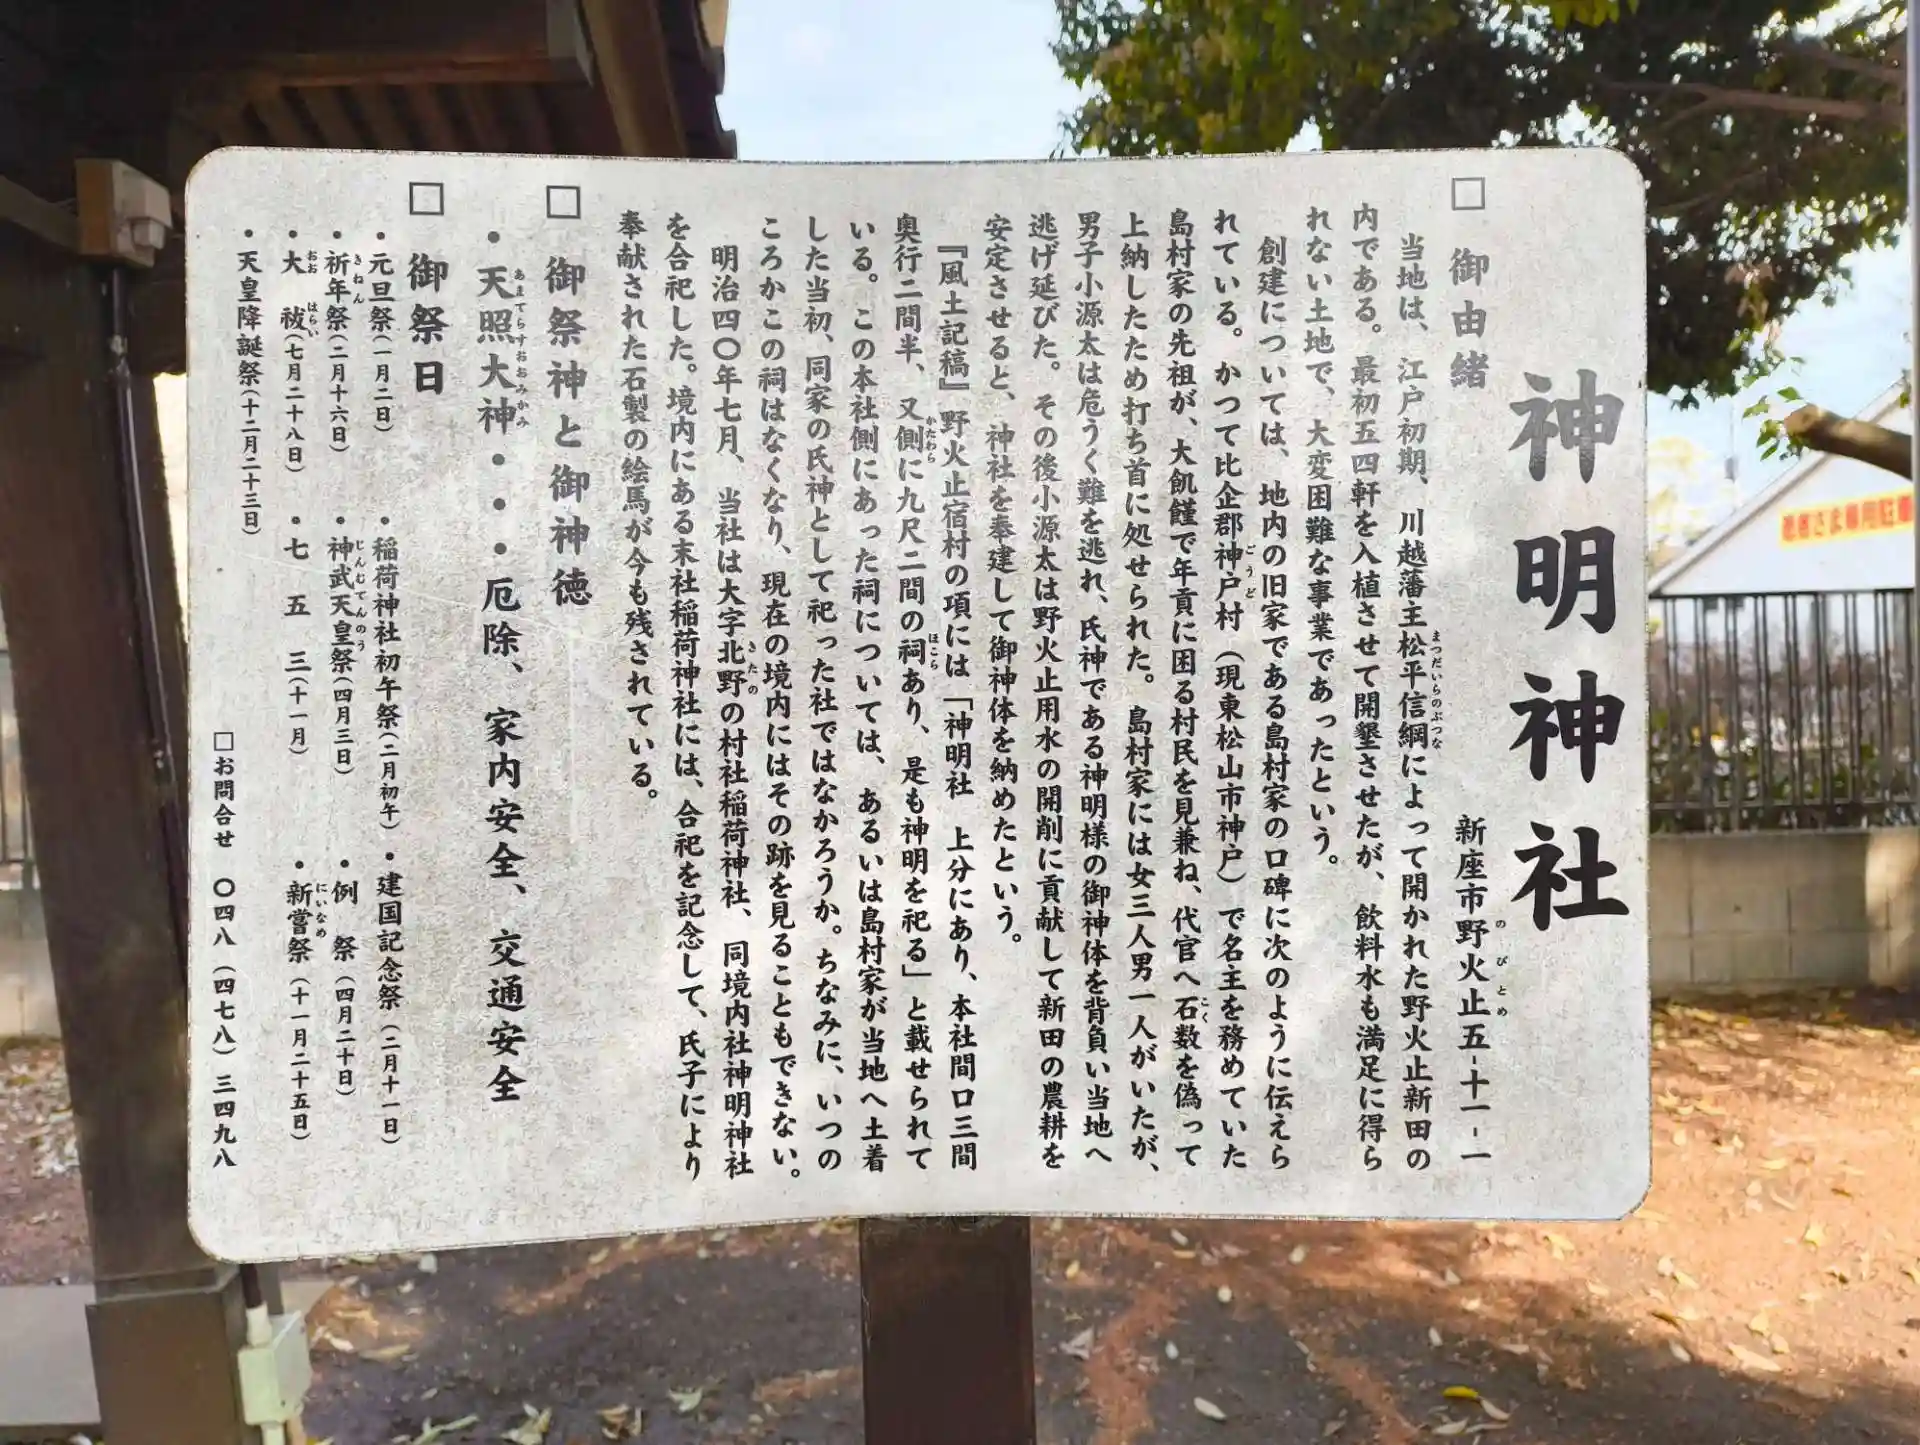 神明神社
新座市野火止五-十一-一
のびとめ
□ 御由緒
当地は、江戸初期、川越藩主松平信綱によって開かれた野火止新田の
まつだいらのぶつな
内である。最初五四軒を入植させて開墾させたが、飲料水も満足に得ら
れない土地で、大変困難な事業であったという。
創建については、地内の旧家である島村家の口碑に次のように伝えら
れている。かつて比企郡神戸村（現東松山市神戸）で名主を務めていた
ごうど
島村家の先祖が、大飢饉で年貢に困る村民を見兼ね、代官へ石数を偽って
こく
上納したため打ち首に処せられた。島村家には女三人男一人がいたが、
男子小源太は危うく難を逃れ、氏神である神明様の御神体を背負い当地へ
逃げ延びた。その後小源太は野火止用水の開削に貢献して新田の農耕を
安定させると、神社を奉建して御神体を納めたという。
『風土記稿』野火止宿村の項には「神明社　上分にあり、本社間口三間
奥行二間半、又側に九尺二間の祠あり、是も神明を祀る」と載せられて
かたわら
ほこら
いる。この本社側にあった祠については、あるいは島村家が当地へ土着
した当初、同家の氏神として祀った社ではなかろうか。ちなみに、いつの
ころかこの祠はなくなり、現在の境内にはその跡を見ることもできない。
明治四〇年七月、当社は大字北野の村社稲荷神社、同境内社神明神社
きたの
を合祀した。境内にある末社稲荷神社には、合祀を記念して、氏子により
奉献された石製の絵馬が今も残されている。
□ 御祭神と御神徳
・天照大神・・・厄除、家内安全、交通安全
あまてらすおおみかみ
□ 御祭日
・元旦祭（一月一日）　・稲荷神社初午祭（二月初午）　・建国記念祭（二月十一日）
・祈年祭（二月十六日）　・神武天皇祭（四月三日）　・例　祭（四月二十日）
きねん
じんむてんのう
・大　祓（七月二十八日）　・七　五　三（十一月）　・新嘗祭（十一月二十五日）
おお　はらい
にいなめ
・天皇降誕祭（十二月二十三日）
□お問合せ　〇四八（四七八）三四九八
患者さま専用駐車